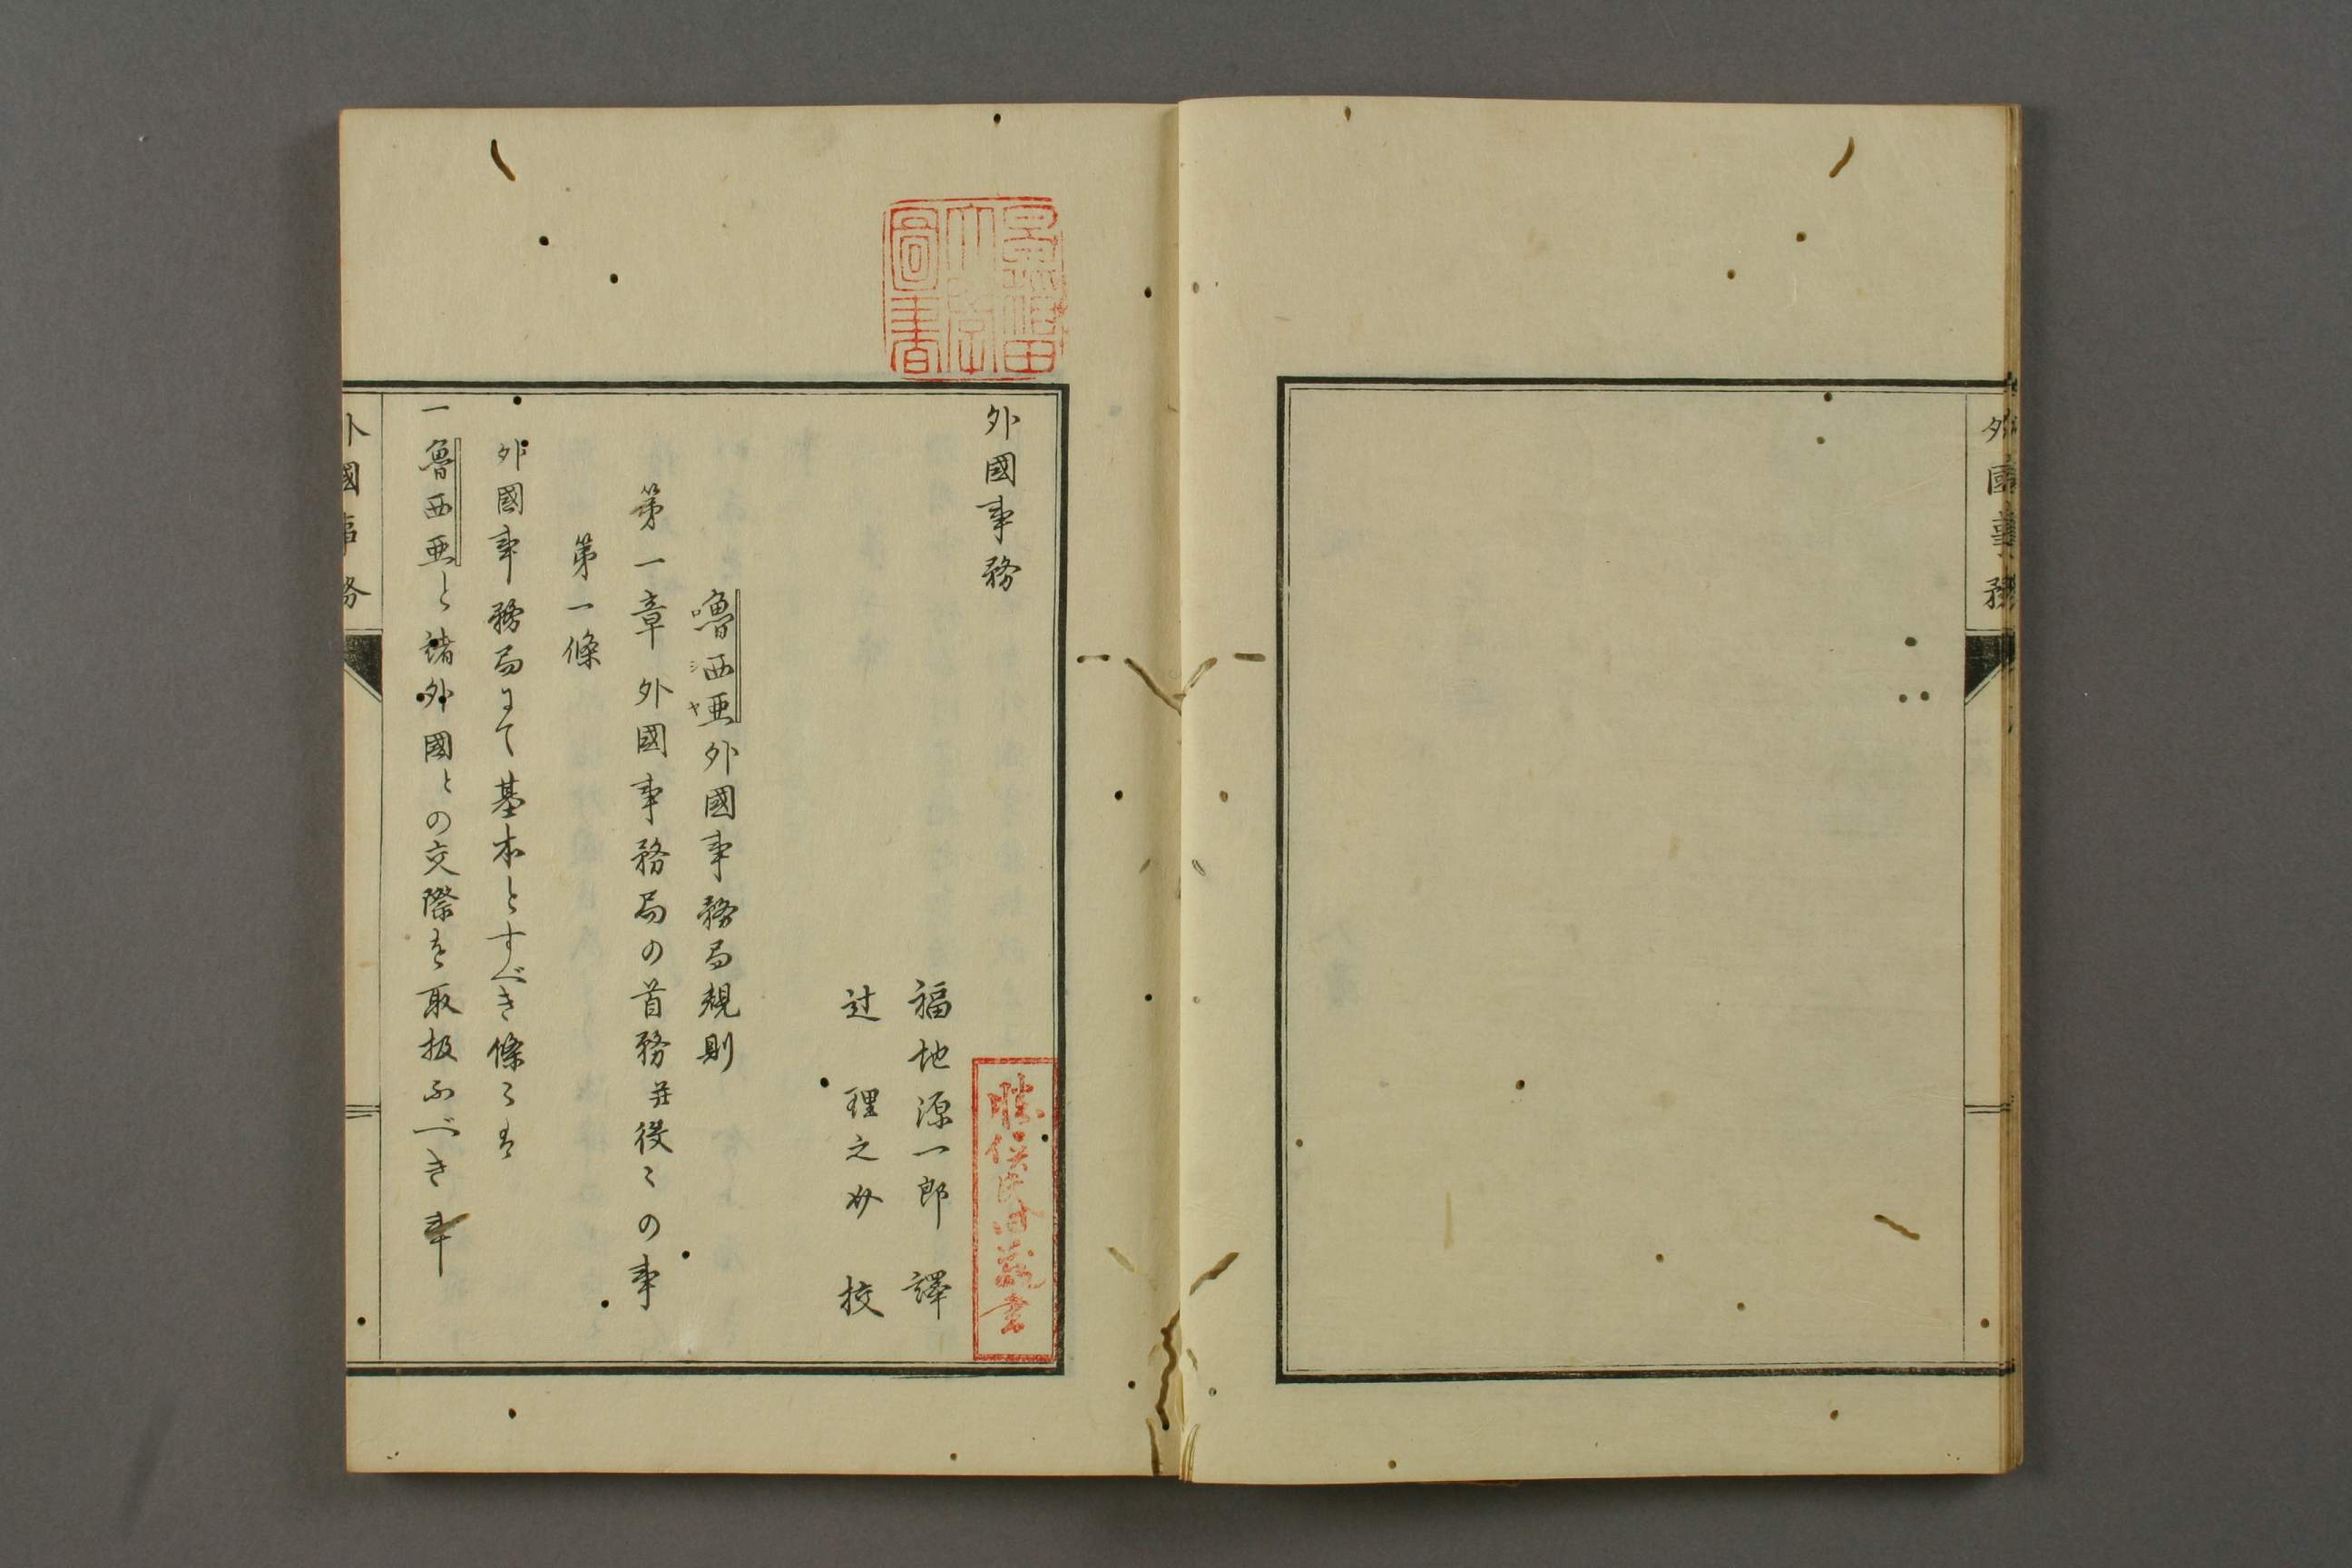 外國事務
外國事務
福地源一郎 譯
辻 理之介 挍
嚕西亜外國事務局規則
シヤ
第一章 外國事務局の首務并役〻の事
第一條
外國事務局にて基本とすべき條〻は
一魯西亜と諸外國との交際を取扱ふべき事
外國事務
早稲田大學圖書